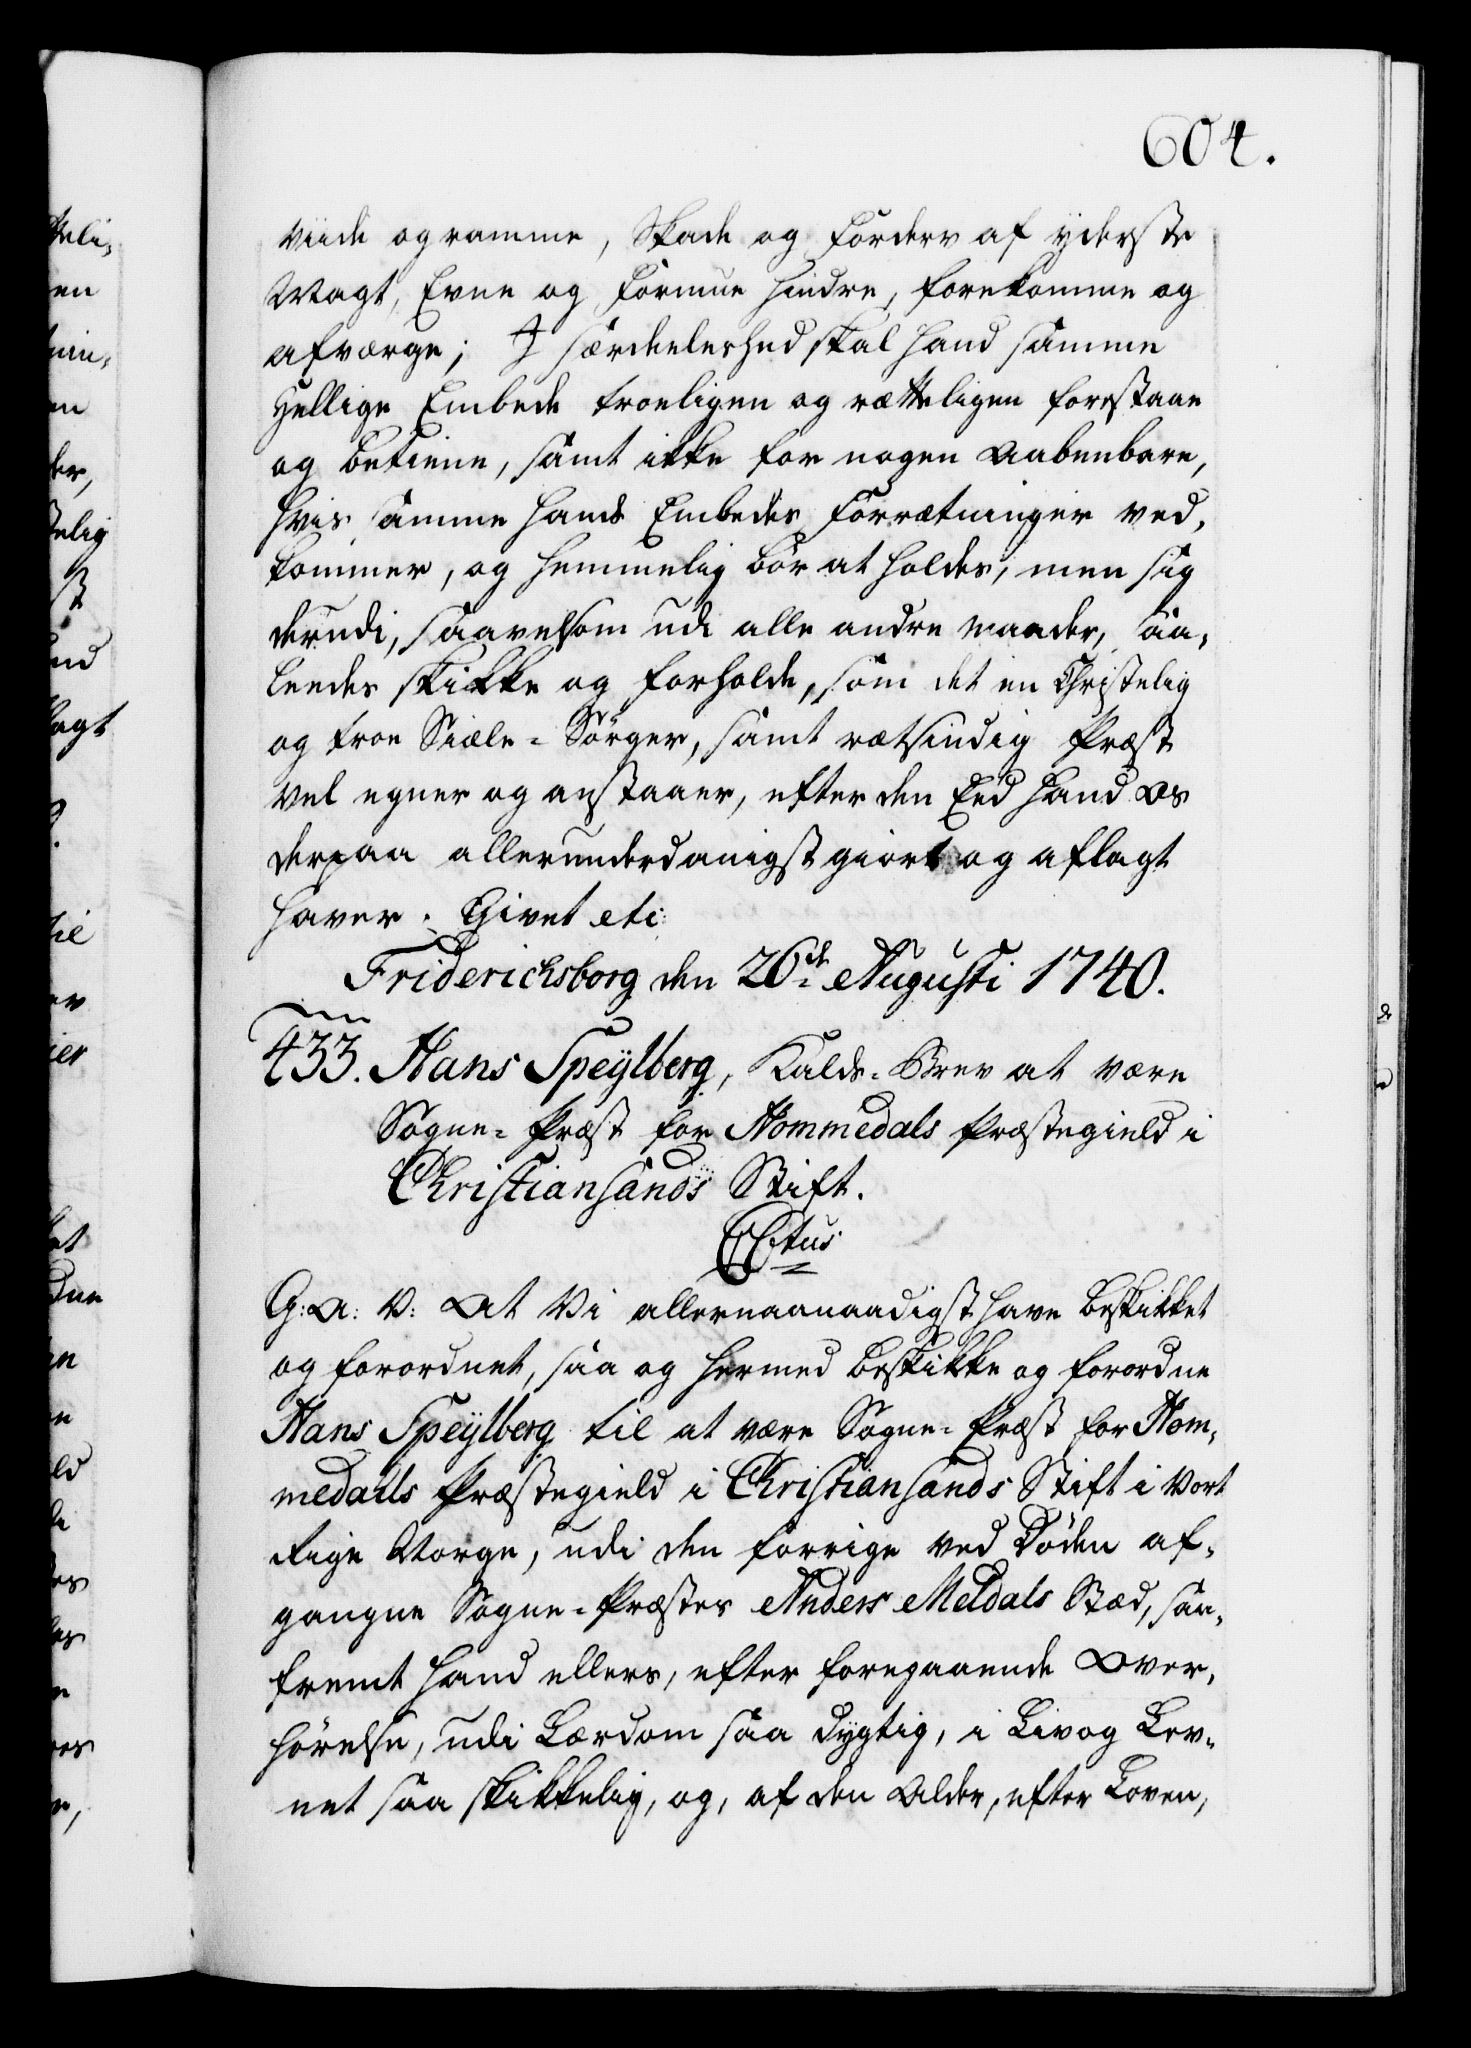 604.
viide og ramme, Skade og Forderv af yderste
Magt, Evne og Formue hindre, forekomme og
afværge; J særdeeleshed skal hand samme
Hellige Embede troeligen og rætteligen forestaae
og betiene, samt ikke for nogen aabenbare,
hvis samme hands Embedes Forrætninger ved,
kommer, og hemmelig bör at holdes, men sig
derudi, saavelsom udi alle andre maader, saa,
leedes skikke og forholde, som det en Christelig
og troe Siæle-Sörger, samt rætsindig Præst
vel egner og anstaaer, efter den Eed hand os
derpaa allerunderdanigst giort og aflagt
haver. Givet etc:
Friderichsborg den 26de Augusti 1740.
433. Hans Speÿlberg, Kalds-Brev at være
Sogne-Præst for Hommedals Præstegield i
Christiansands Stift.
G: A: V: At Vi allernaanaadigst have beskikket
og forordnet, saa og hermed beskikke og forordne
Hans Speÿlberg til at være Sogne-Præst for Hom,
medahls Præstegield i Christiansands Stift i Vort
Rige Norge, udi den forrige ved Döden af,
gangne Sogne-Præstes Anders Meldals Stæd, saa,
fremt hand ellers, efter foregaaende Over,
hörelse, udi Lærdom saa dygtig, i Liv og Lev,
net saa skikkelig, og, af den Alder, efter Loven,